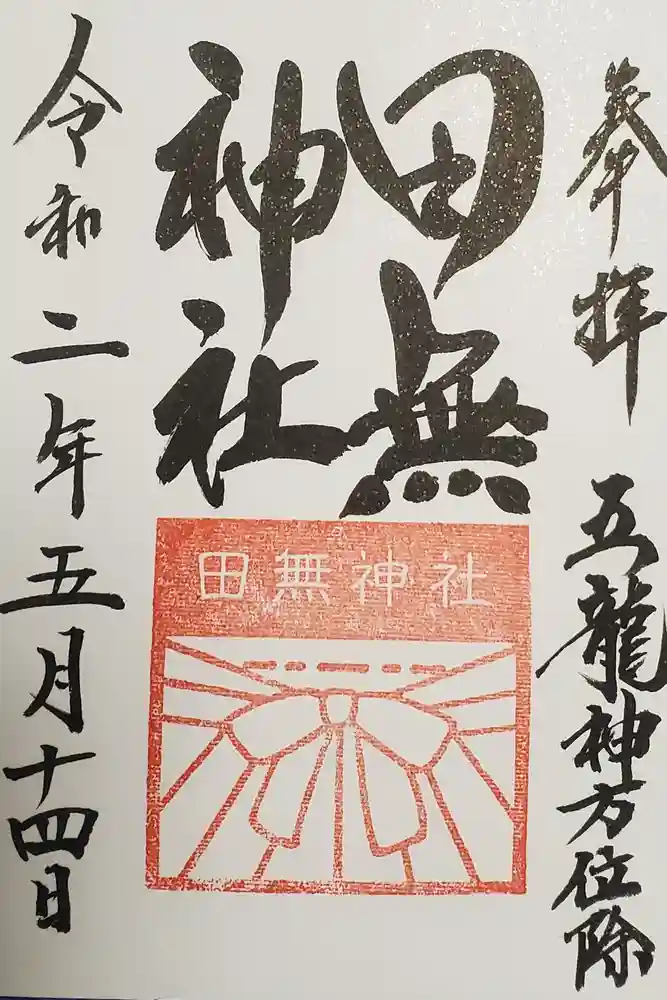 奉拝
五龍神方位除
田無
神社
田無神社
令和二年五月十四日